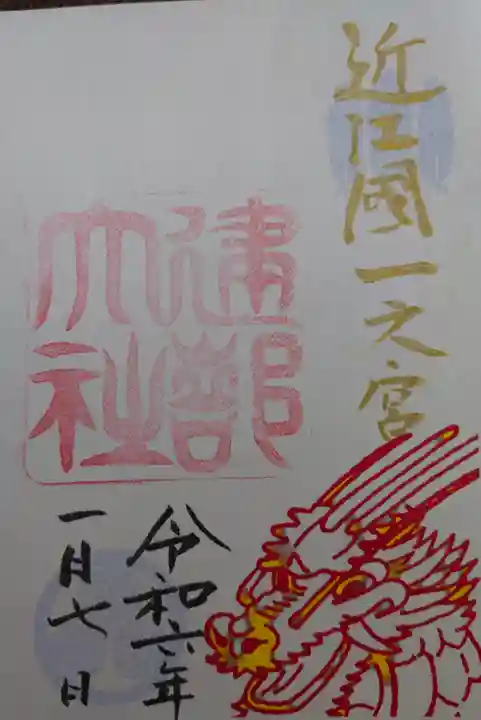 近江國一之宮
建部
大社
令和六年
一月七日